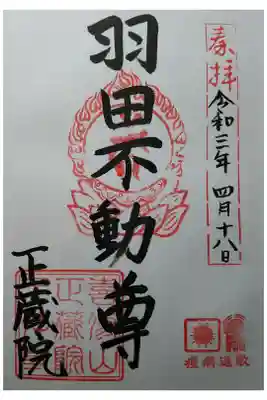 奉拝
令和三年 四月十八日
羽田不動尊
正蔵院
正蔵院